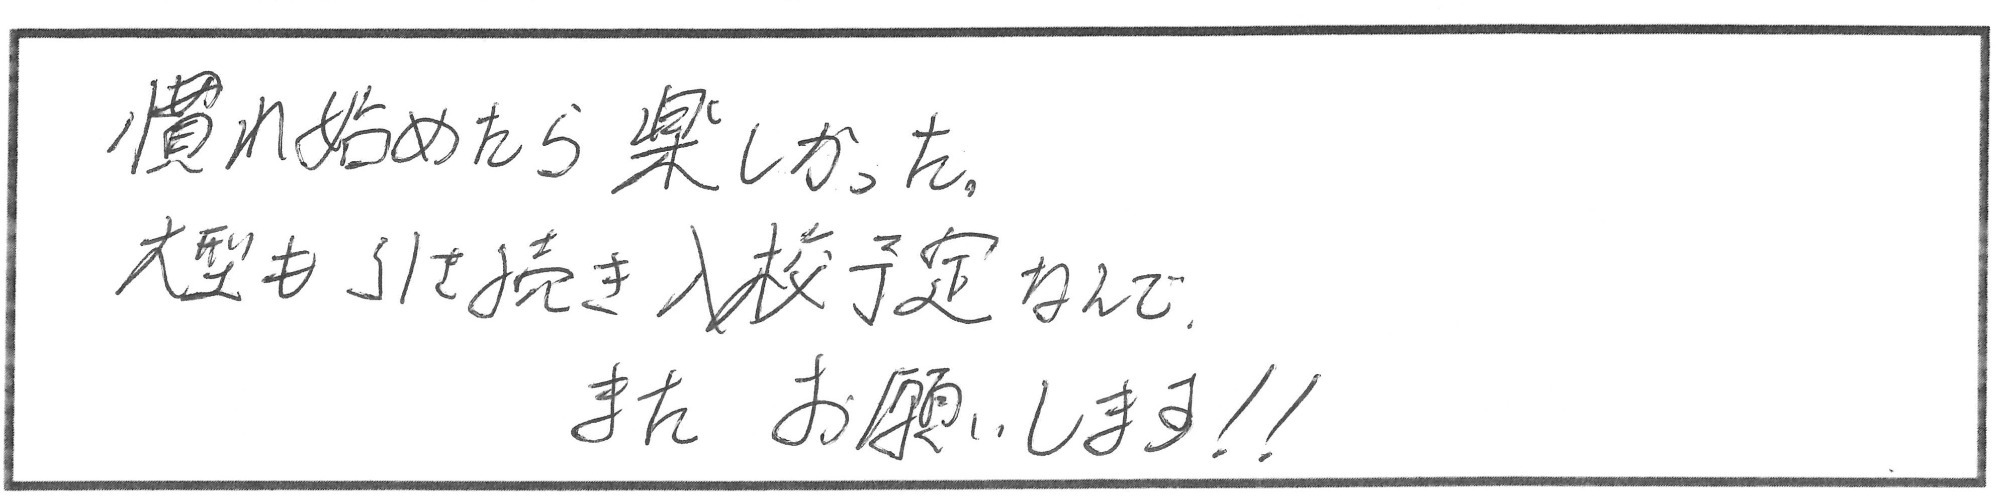 慣れ始めたら楽しかった。
大型も引き続き入校予定なんで、
また お願いします!!